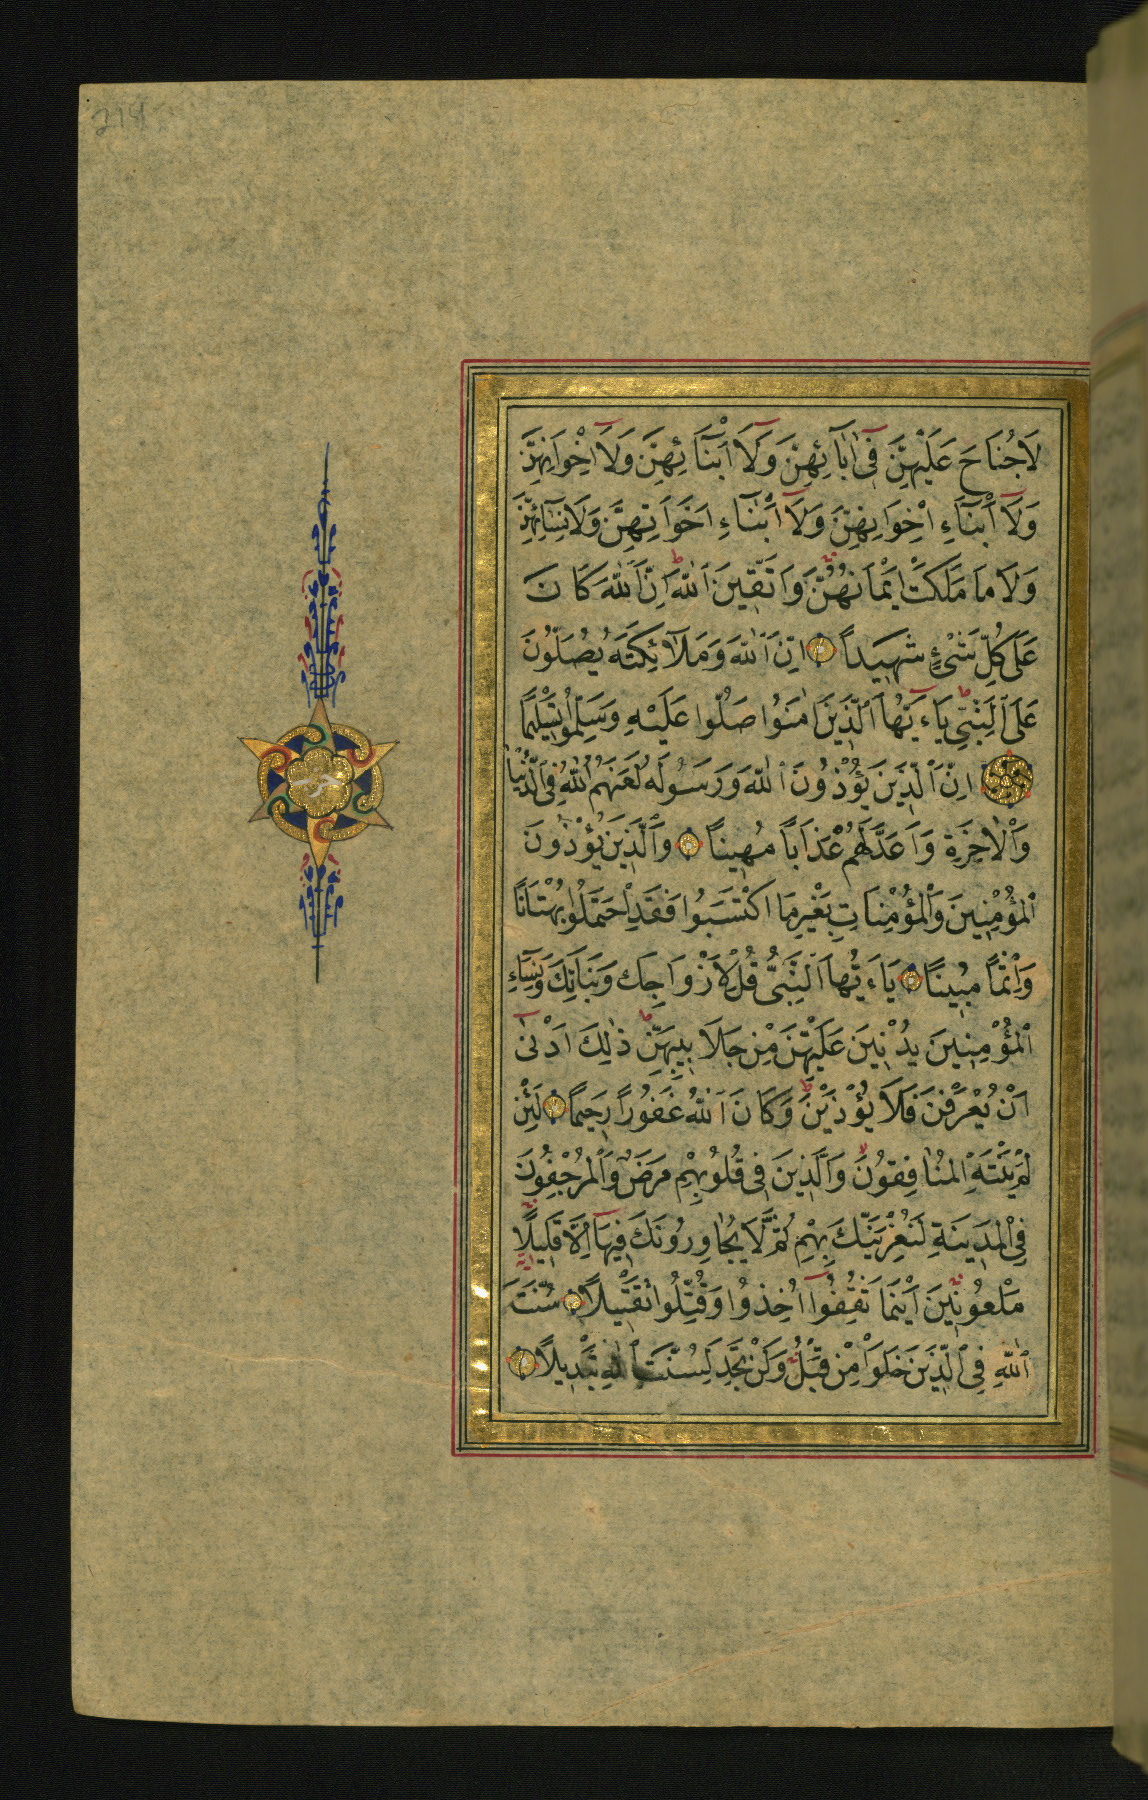 214
لَاجُنَاحَ عَلَيْهِنَّ فِىٓ اٰبَآئِهِنَّ وَلَآ اَبْنَآئِهِنَّ وَلَآ اِخْوَانِهِنَّ
وَلَآ اَبْنَآءِ اِخْوَانِهِنَّ وَلَآ اَبْنَآءِ اَخَوَاتِهِنَّ وَلَا نِسَآئِهِنَّ
وَلَا مَا مَلَكَتْ اَيْمَانُهُنَّ وَاتَّقِينَ ٱللّٰهَ اِنَّ ٱللّٰهَ كَانَ
عَلٰى كُلِّ شَىْءٍ شَهِيداً اِنَّ ٱللّٰهَ وَمَلَآئِكَتَهُ يُصَلُّونَ
عَلَى ٱلنَّبِىِّ يَآءَيُّهَا ٱلَّذِينَ اٰمَنُوا صَلُّوا عَلَيْهِ وَسَلِّمُوا تَسْلِيمًا
اِنَّ ٱلَّذِينَ يُؤْذُونَ ٱللّٰهَ وَرَسُولَهُ لَعَنَهُمُ ٱللّٰهُ فِى ٱلدُّنْيَا
وَٱلْاٰخِرَةِ وَاَعَدَّ لَهُمْ عَذَاباً مُهِيناً وَٱلَّذِينَ يُؤْذُونَ
ٱلْمُؤْمِنِينَ وَٱلْمُؤْمِنَاتِ بِغَيْرِ مَا اكْتَسَبُوا فَقَدِ ٱحْتَمَلُوا بُهْتَانًا
وَاِثْمًا مُبِينًا يَآءَيُّهَا ٱلنَّبِىُّ قُلْ لِاَزْوَاجِكَ وَبَنَاتِكَ وَنِسَآءِ
ٱلْمُؤْمِنِينَ يُدْنِينَ عَلَيْهِنَّ مِنْ جَلَابِيبِهِنَّ ذٰلِكَ اَدْنٰىٓ
اَنْ يُعْرَفْنَ فَلَا يُؤْذَيْنَ وَكَانَ ٱللّٰهُ غَفُورًا رَحِيمًا لَئِنْ
لَمْ يَنْتَهِ ٱلْمُنَافِقُونَ وَٱلَّذِينَ فِى قُلُوبِهِمْ مَرَضٌ وَٱلْمُرْجِفُونَ
فِى ٱلْمَدِينَةِ لَنُغْرِيَنَّكَ بِهِمْ ثُمَّ لَا يُجَاوِرُونَكَ فِيهَآ اِلَّا قَلِيلًا
مَلْعُونِينَ اَيْنَمَا ثُقِفُوٓا اُخِذُوا وَقُتِّلُوا تَقْتِيلًا سُنَّتَ
ٱللّٰهِ فِى ٱلَّذِينَ خَلَوْا مِنْ قَبْلُ وَلَنْ تَجِدَ لِسُنَّتِ ٱللّٰهِ تَبْدِيلًا